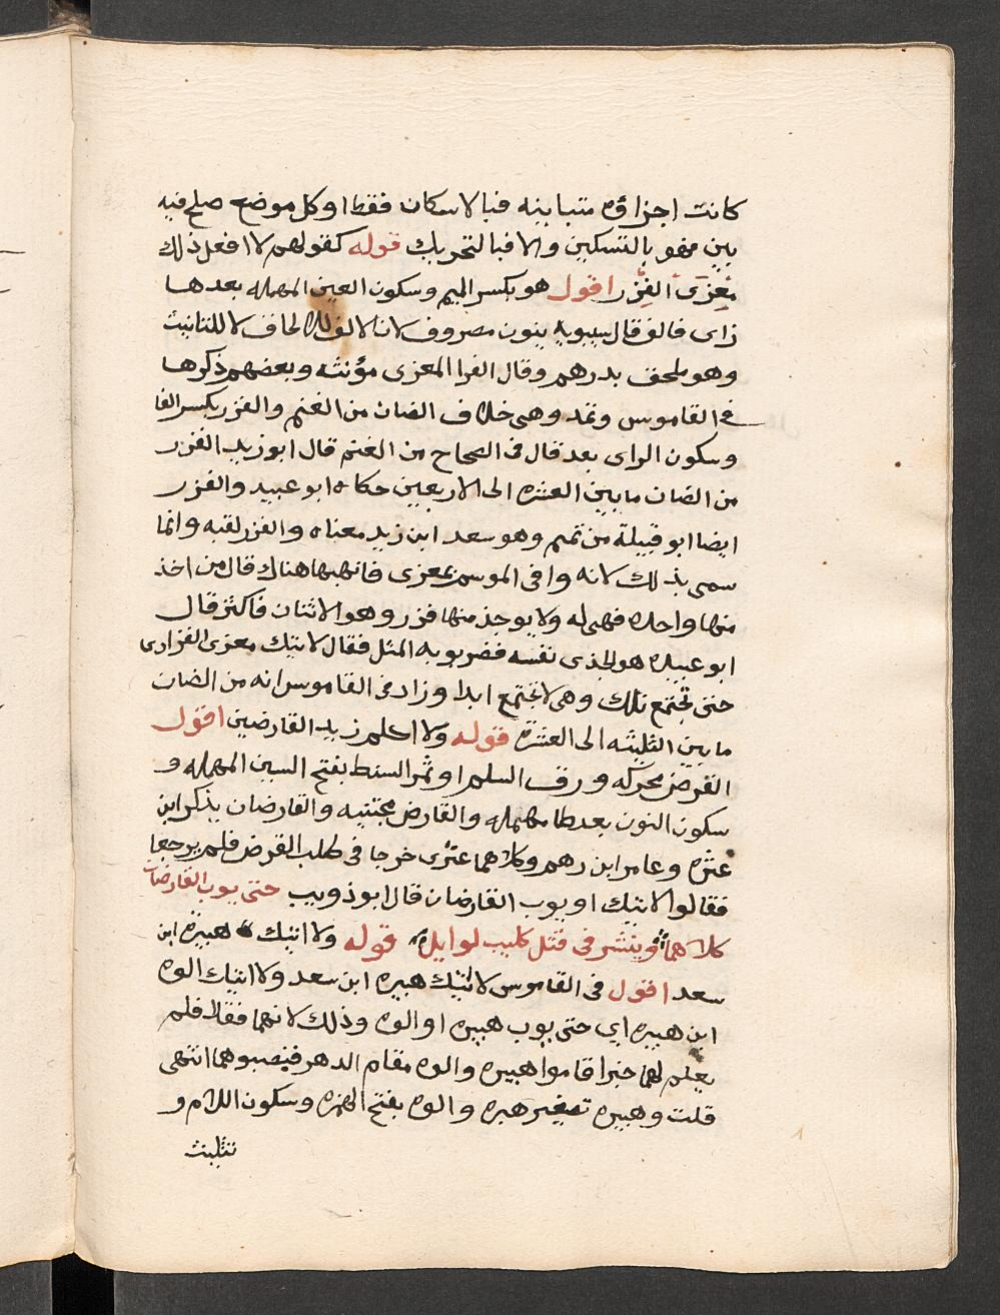 كانت اجزاؤه متباينه فبالاسكان فقط او كل موضع صلح فيه
بين فهو بالتسكين والا فبالتحريك قوله كقولهم لا افعل ذلك
مِعْزَى الفِزْر اقول هو بكسر الميم وسكون العين المهمله بعدها
زاى فالف قال سيبويه ينون مصروف لان الالف للالحاف لا للتانيث
وهو ملحق بدرهم وقال الفرا المعزى مؤنثه وبعضهم ذكرها
فى القاموس وتمد وهى خلاف الضان من الغنم والفزر بكسر الفا
وسكون الزاى بعد قال فى الصحاح من الغنم قال ابو زيد الفزر
من الضان ما بين العشره الى الاربعين حكاه ابو عبيد والفزر
ايضا ابو قبيلة من تميم وهو سعد ابن زيد معناه والفزر لقبه وانما
سمى بذلك لانه وافى الموسم بمعزى فانهبها هناك قال من اخذ
منها واحده فهى له ولا يوجد منها فزر وهو الاثنان فاكثر قال
ابو عبيده هو الجدى نفسه فضربو به المثل فقال لا نتيك معزى الفزر اى
حتى تجتمع تلك وهى لا تجتمع ابدا وزاد فى القاموس انه من الضان
ما بين الثليثه الى العشرة قوله ولا اكلم زيد القارضين اقول
القرض محركه ورق السلم او ثمر السنط بفتح السين المهمله و
سكون النون بعد طا مهمله والقارض مجتنيه والقارضان يذكر ابن
عنزه وعامر ابن رهم وكلاهما عنزى خرجا فى طلب القرض فلم يرجعا
فقالوا لا اتيك او يوب القارضان قال ابو ذويب حتى يوب القارضان
كلاهما وينشر فى قتل كليب لوايل قوله ولا اتيك هبيرة ابن
سعد اقول فى القاموس لا اتيك هبيره ابن سعد ولا اتيك الوه
ابن هبيره اى حتى يوب هبيره او الوه وذلك لانهما فقدا فلم
يعلم لهما خبر اقاموا هبيره والوه مقام الدهر فنصبوهما انتهى
قلت وهبيره تصغير هبره والوه بفتح الهمزه وسكون اللام و
تثليث